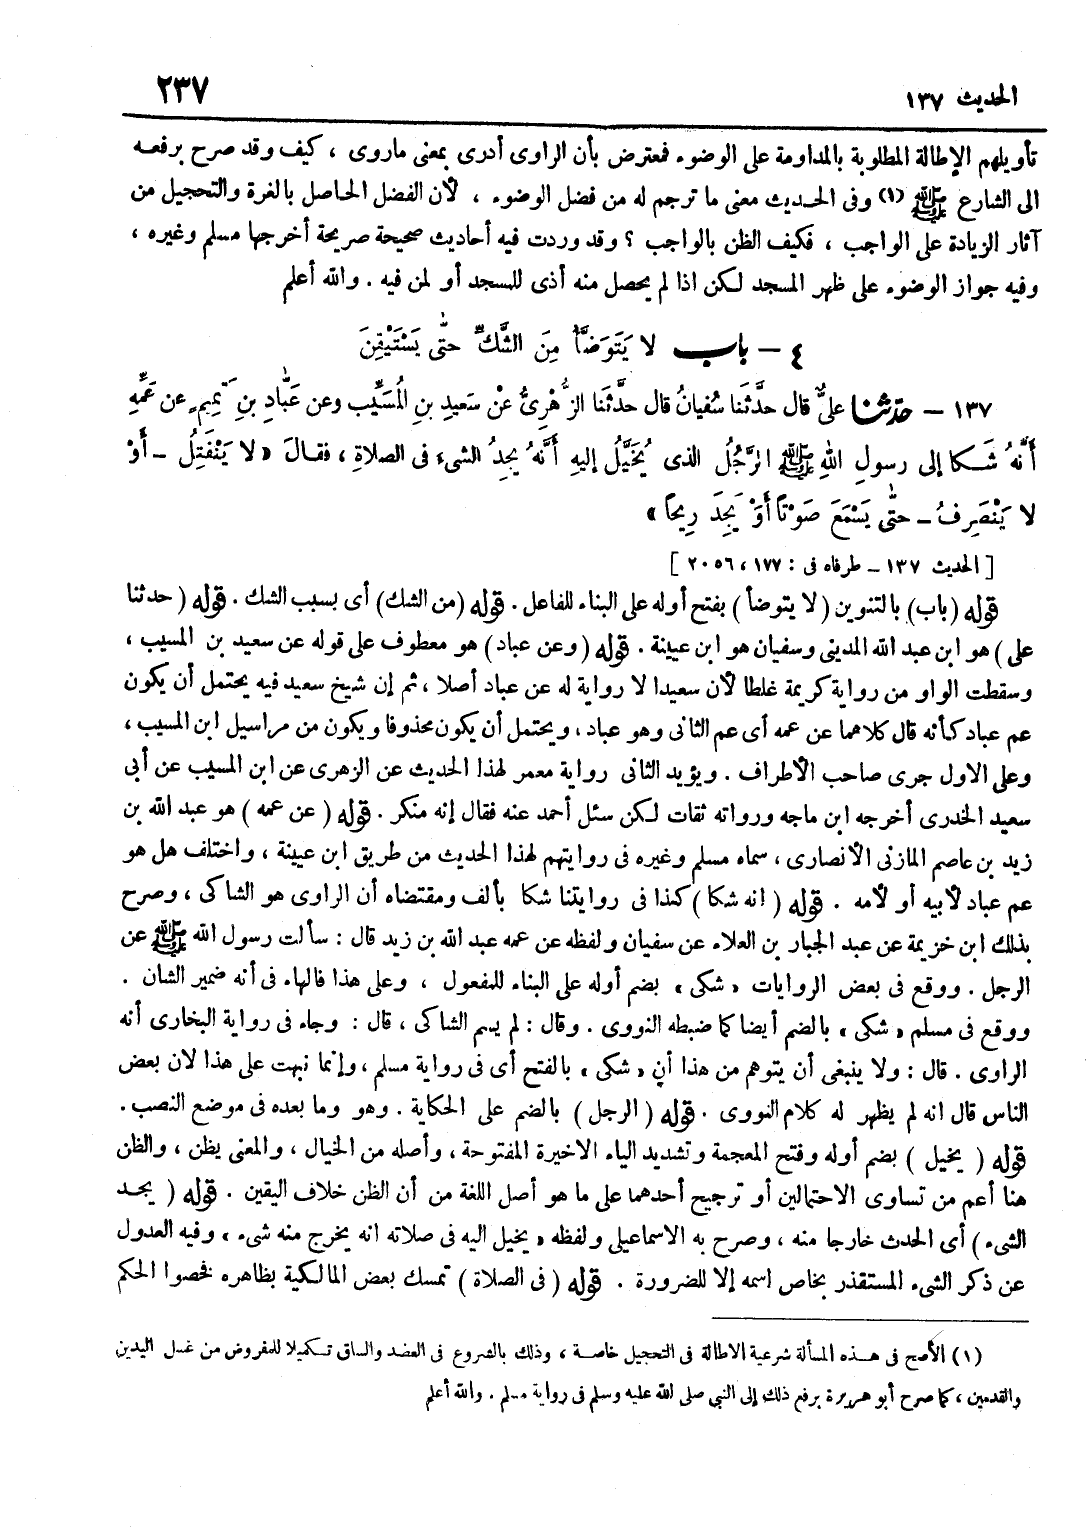 الحديث ١٣٧ ٢٣٧
تأويلهم الإطالة المطلوبة بالمداومة على الوضوء فمعترض بأن الراوى أدرى بمعنى ماروى ، كيف وقد صرح برفعه
الى الشارع ﷺ (١) وفى الحديث معنى ما ترجم له من فضل الوضوء ، لأن الفضل الحاصل بالغرة والتحجيل من
آثار الزيادة على الواجب ، فكيف الظن بالواجب ؟ وقد وردت فيه أحاديث صحيحة صريحة أخرجها مسلم وغيره ،
وفيه جواز الوضوء على ظهر المسجد لكن اذا لم يحصل منه أذى للمسجد أو لمن فيه . والله أعلم
٤ – باب لا يَتَوَضَّأُ مِنَ الشَّكِّ حتَّى يَسْتَيْقِنَ
١٣٧ – حدّثنا علىٌّ قال حدَّثَنا سُفيانُ قال حدَّثَنا الزُّهرِىُّ عنْ سَعيدِ بنِ المُسَيَّبِ وعن عَبَّادِ بنِ تَمِيمٍ عن عَمِّهِ
أَنَّهُ شَكا إلى رسولِ اللهِ ﷺ الرَّجُلُ الذى يُخَيَّلُ إليهِ أَنَّهُ يجِدُ الشىءَ فى الصلاةِ ، فقالَ « لا يَنْفَتِلُ – أَوْ
لا يَنْصَرِفُ – حتَّى يَسْمَعَ صَوْتًا أَوْ يَجِدَ رِيحًا »
[ الحديث ١٣٧ – طرفاه فى : ١٧٧ ، ٢٠٥٦ ]
قوله (باب) بالتنوين (لا يتوضأ) بفتح أوله على البناء للفاعل . قوله (من الشك) أى بسبب الشك . قوله (حدثنا
على) هو ابن عبد الله المدينى وسفيان هو ابن عيينة . قوله (وعن عباد) هو معطوف على قوله عن سعيد بن المسيب ،
وسقطت الواو من رواية كريمة غلطا لأن سعيدا لا رواية له عن عباد أصلا ، ثم إن شيخ سعيد فيه يحتمل أن يكون
عم عباد كأنه قال كلاهما عن عمه أى عم الثانى وهو عباد ، ويحتمل أن يكون محذوفا ويكون من مراسيل ابن المسيب ،
وعلى الاول جرى صاحب الأطراف . ويؤيد الثانى رواية معمر لهذا الحديث عن الزهرى عن ابن المسيب عن أبى
سعيد الخدرى أخرجه ابن ماجه ورواته ثقات لكن سئل أحمد عنه فقال إنه منكر . قوله (عن عمه) هو عبد الله بن
زيد بن عاصم المازنى الأنصارى ، سماه مسلم وغيره فى روايتهم لهذا الحديث من طريق ابن عيينة ، واختلف هل هو
عم عباد لأبيه أو لأمه . قوله (انه شكا) كذا فى روايتنا شكا بألف ومقتضاه أن الراوى هو الشاكى ، وصرح
بذلك ابن خزيمة عن عبد الجبار بن العلاء عن سفيان ولفظه عن عمه عبد الله بن زيد قال : سألت رسول الله ﷺ عن
الرجل . ووقع فى بعض الروايات « شكى » بضم أوله على البناء للمفعول ، وعلى هذا فالهاء فى أنه ضمير الشان .
ووقع فى مسلم « شكى » بالضم أيضا كما ضبطه النووى . وقال : لم يسم الشاكى ، قال : وجاء فى رواية البخارى أنه
الراوى . قال : ولا ينبغى أن يتوهم من هذا أن « شكى » بالفتح أى فى رواية مسلم ، وإنما نبهت على هذا لان بعض
الناس قال انه لم يظهر له كلام النووى . قوله (الرجل) بالضم على الحكاية . وهو وما بعده فى موضع النصب .
قوله (يخيل) بضم أوله وفتح المعجمة وتشديد الياء الاخيرة المفتوحة ، وأصله من الخيال ، والمعنى يظن ، والظن
هنا أعم من تساوى الاحتمالين أو ترجيح أحدهما على ما هو أصل اللغة من أن الظن خلاف اليقين . قوله (يجد
الشىء) أى الحدث خارجا منه ، وصرح به الاسماعيلى ولفظه « يخيل اليه فى صلاته انه يخرج منه شىء » وفيه العدول
عن ذكر الشىء المستقذر بخاص اسمه إلا للضرورة . قوله (فى الصلاة) تمسك بعض المالكية بظاهره فخصوا الحكم
(١) الأصح فى هذه المسألة شرعية الاطالة فى التحجيل خاصة ، وذلك بالشروع فى العضد والساق تكميلا للمفروض من غسل اليدين
والقدمين ، كما صرح أبو هريرة برفع ذلك إلى النبي صلى الله عليه وسلم فى رواية مسلم . والله أعلم